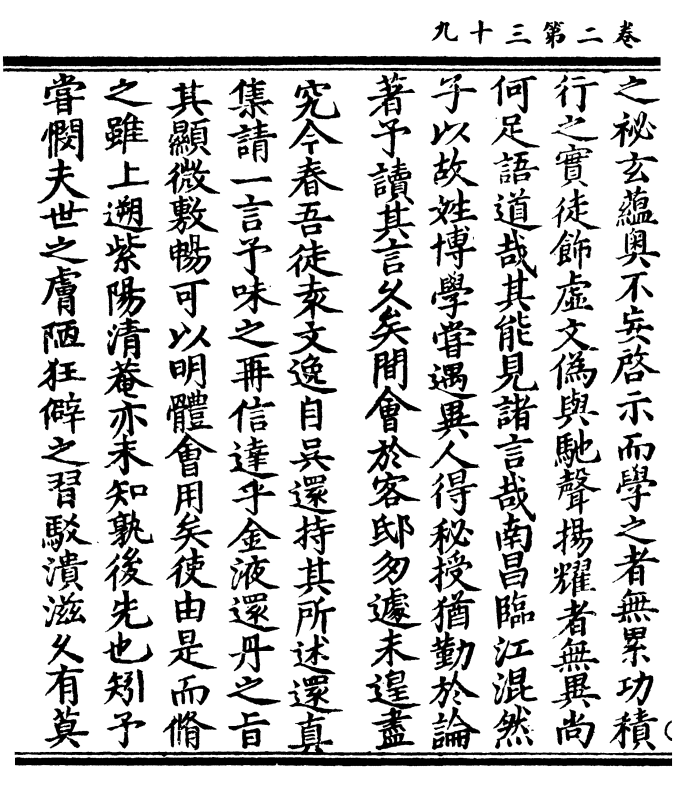 卷二第三十九
之祕玄蘊奧不妄啓示而學之者無累功積
行之實徒飾虛文偽與馳聲揚耀者無異尚
何足語道哉其能見諸言哉南昌臨江混然
子以故姓博學嘗遇異人得秘授猶勤於論
著予讀其言久矣間會於客邸匆遽未遑盡
究今春吾徒袁文逸自吳還持其所述還真
集請一言予味之再信達乎金液還丹之旨
其顯微敷暢可以明體會用矣使由是而脩
之雖上遡紫陽清菴亦未知孰後先也矧予
嘗憫夫世之膚陋狂僻之習駁潰滋久有莫